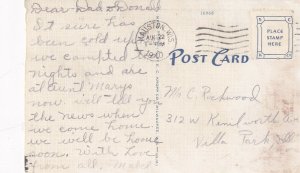 Dear Dad & Donald
It sure has
been cold up
we camped two
nights and are
at Aunt Marys
now. will tell you
the news when
we come home.
we will be home
soon. With Love
from all,
AUG 22
16968
POST CARD
PLACE
STAMP
HERE
Mr. C. Rockwood
312 W. Kenilworth Ave
Villa Park Ill